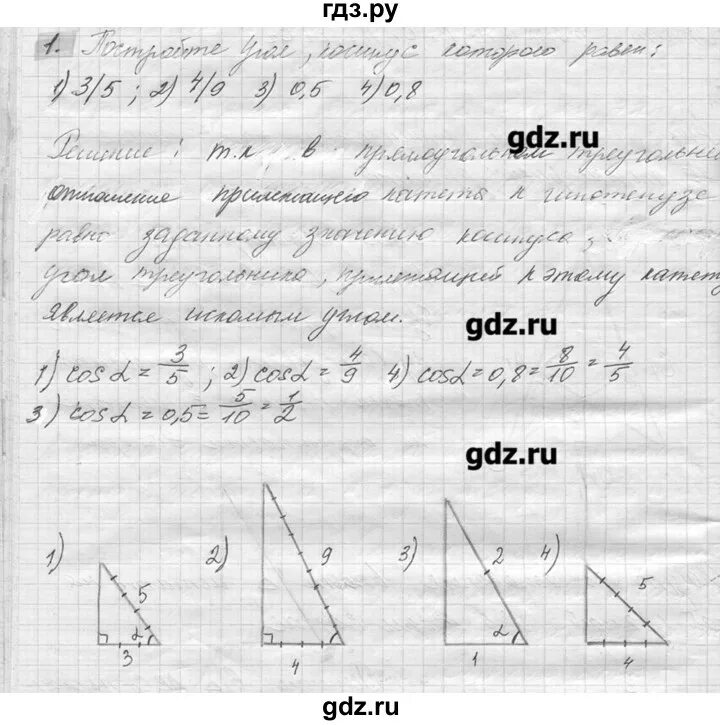 гдз.ру
1. Постройте угол, косинус которого равен:
1) 3/5 ; 2) 4/9 3) 0,5 4) 0,8
gdz.ru
Решение: т.к в прямоугольном треугольни
отношение прилежащего катета к гипотенузе
равно заданному значению косинуса,
угол треугольника, прилежащий к этому катету
является искомым углом.
gdz.ru
1) cos α = 3/5 ; 2) cos α = 4/9 4) cos α = 0,8 = 8/10 = 4/5
3) cos α = 0,5 = 5/10 = 1/2
gdz.ru
1) 5 α 3
2) 9 4
3) 2 α 1
4) 5 4
gdz.ru